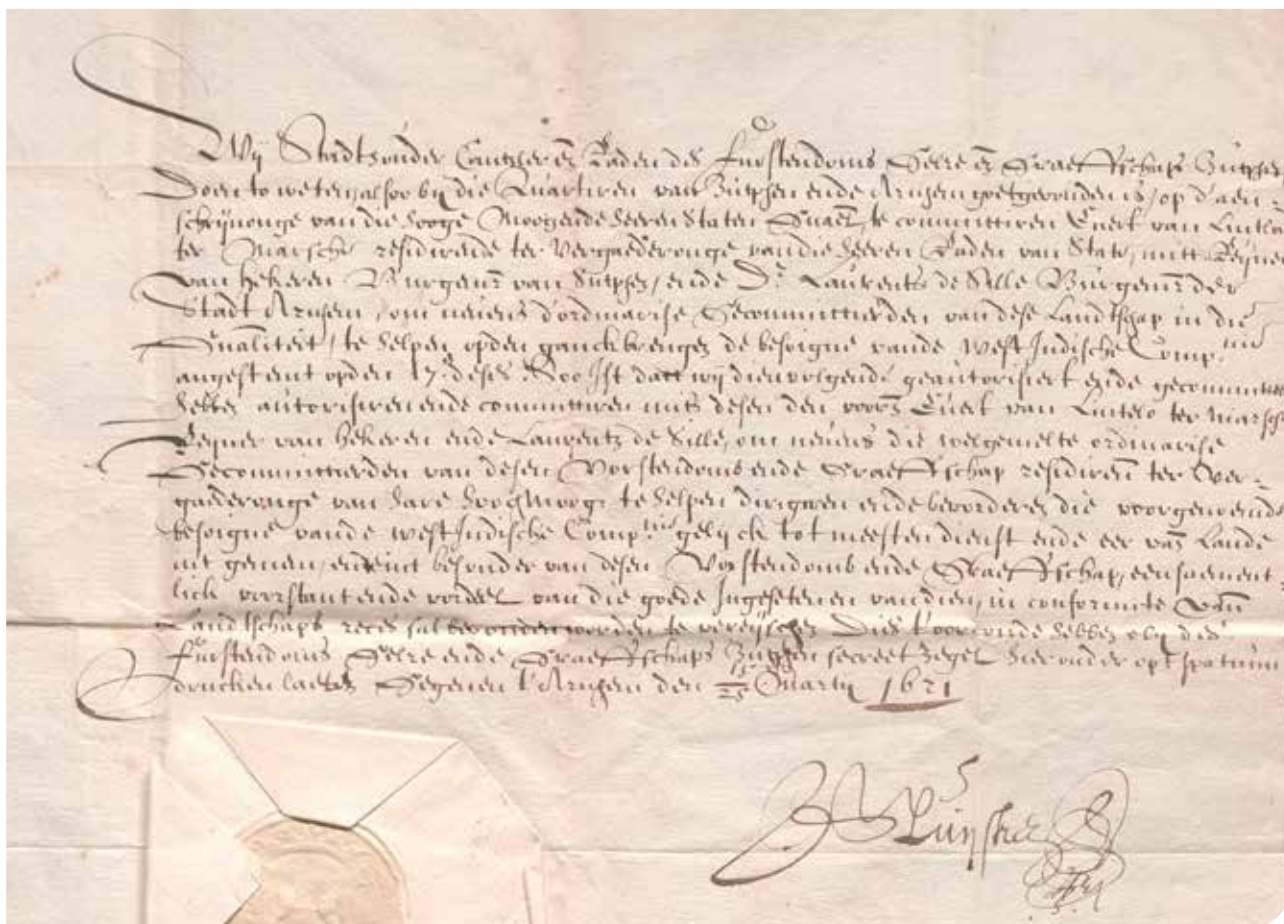 Wij Stadtholder Cantzler en̄ Raden des Furstendoms Gelre en̄ Graeffschaps Zutphen
Doen to weten, alsoo bij die Quartiren van Zutphen ende Arnhem goetgevonden is, op d'aen
schrijvonge van die hooge Moogende heeren Staten Gnael, te committiren Evert van Lintelo
ter Marsche residirende ter Vergaderonge van die heeren Raden van State, mitt Reijner
van hekeren Burgemr van Zutphen, ende Dr Laurents de Sille Burgemr der
Stadt Arnhem, om nevens d'ordinarise Gecommittierden van dese Landtschap in die
Qualiteit, te helpen op den ganck brengen de besoigne vande West Indische Comp.nie
angestemt opden 17. deses. Soo Ist datt wij dienvolgende geautorisiert ende gecommittiert
hebben autorisiren ende committiren mits desen den voors Evert van Lintelo ter Marsche
Reijner van Hekeren ende Laurentz de Sille, om nevens die welgemelte ordinarise
Gecommittierden van desen Vorstendomb ende Graeffschap residiren ter Ver-
gaderonge van hare hoochmoog: te helpen dirigiren ende bevorderen die voorgenoemde
besoigne vande West Indische Comp.nie gelijck tot meesten dienst ende eer van Lande
int gemein, ende int besonder van desen Vorstendomb ende Graeffschap, eensaement
lick voorstant ende vordel van die goede Ingesetenen van dien, in conformite van
Landtschaps reces sal bevonden worden te vereijschen Dies t'oorconde hebben wij des
Furstendoms Gelre ende Graeffschaps Zutphen secreet zegel hier onder opt spatium
drucken laeten Gegeven t'Arnhem den 15/25 Martij 1621